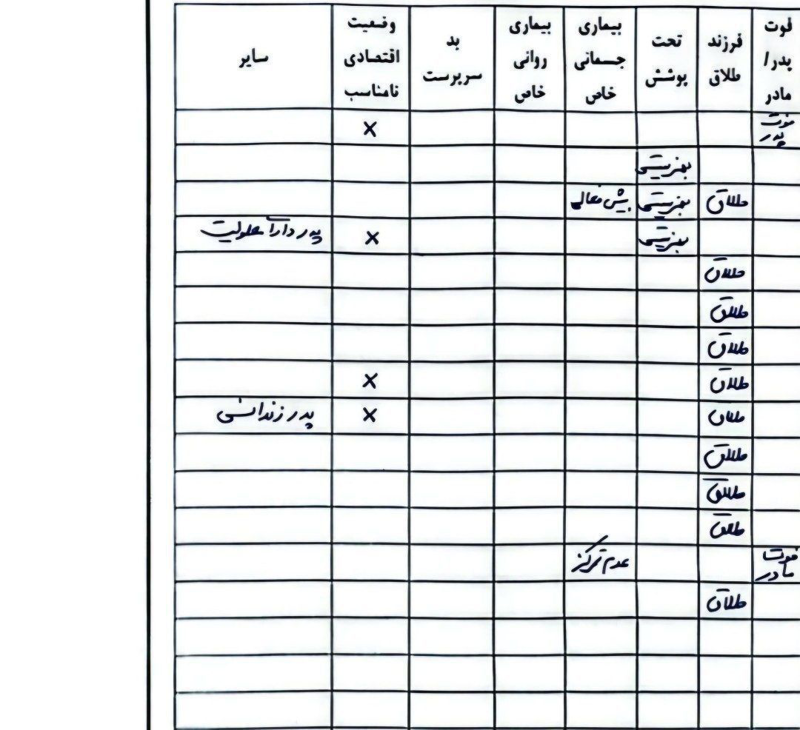 فوت پدر/ مادر
فرزند طلاق
تحت پوشش
بیماری جسمانی خاص
بیماری روانی خاص
بد سرپرست
وضعیت اقتصادی نامناسب
سایر
فوت پدر ×
بهزیستی
طلاق بهزیستی بیش فعالی
بهزیستی × پدر دارای معلولیت
طلاق
طلاق
طلاق
طلاق ×
طلاق × پدر زندانی
طلاق
طلاق
طلاق
فوت مادر عدم تمرکز
طلاق